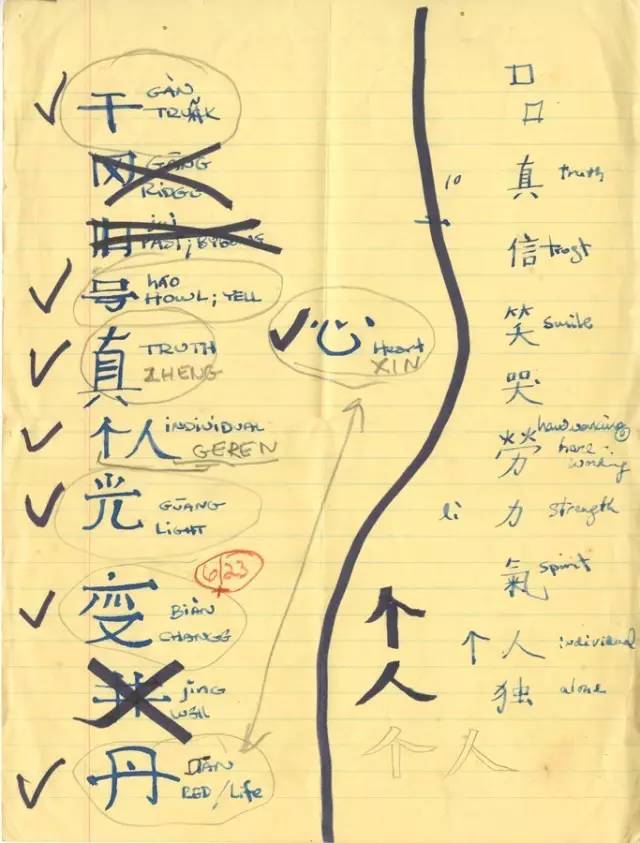 干 GÀN
TRUNK
冈 GĀNG
RIDGE
旧 jiù
PAST; BYGONE
号 hÁO
HOWL; YELL
真 TRUTH
ZHENG
个人 INDIVIDUAL
GEREN
光 GŪANG
LIGHT
6/23
变 BIÀN
CHANGE
井 jǐng
WELL
丹 DĀN
RED/Life
心 Heart
XIN
个
人
口
口
10
真 truth
信 trust
笑 smile
哭
劳 hardworking
working
li 力 strength
氣 spirit
个人 individual
独 alone
个人